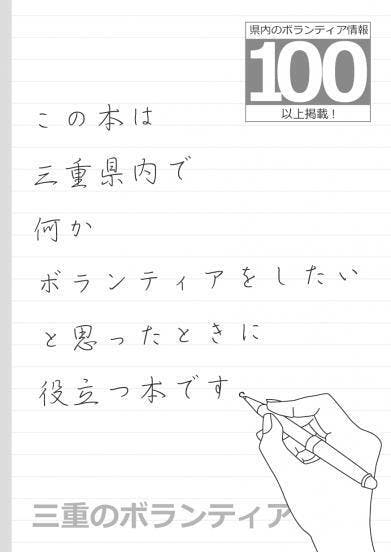 県内のボランティア情報
100
以上掲載！
この本は
三重県内で
何か
ボランティアをしたい
と思ったときに
役立つ本です。
三重のボランティア